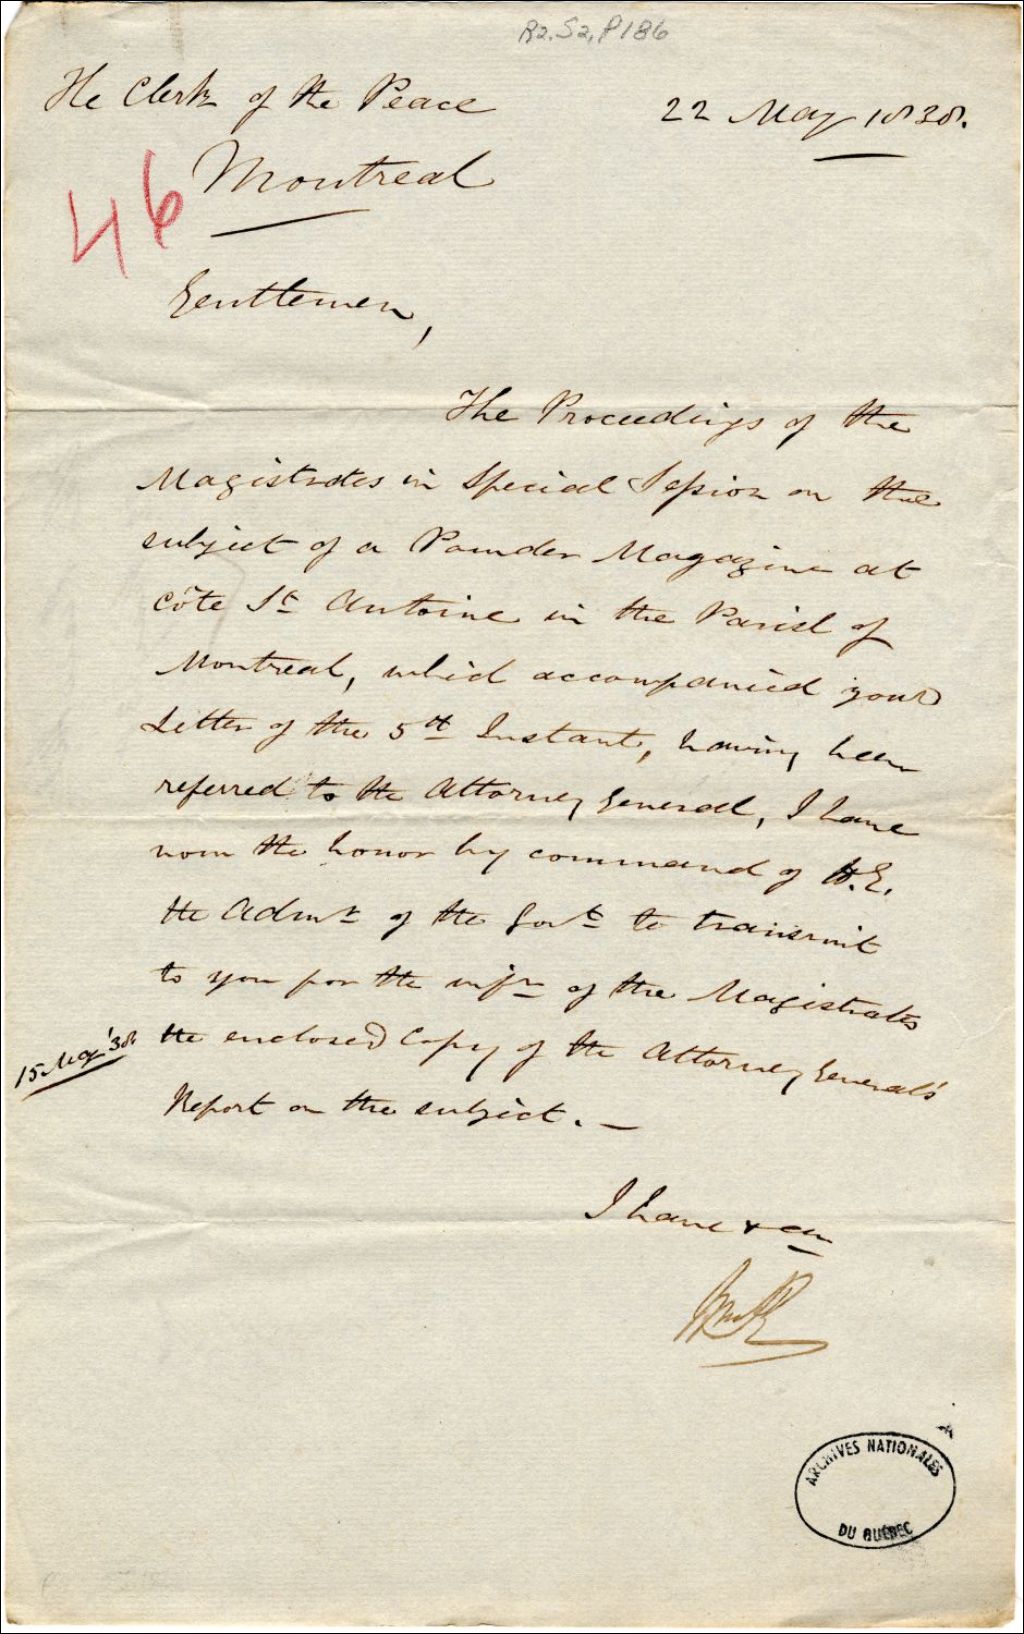 R2,S2,P186
The Clerk of the Peace
22 May 1838.
Montreal
46
Gentlemen,
The Proceedings of the
Magistrates in Special Session on the
subject of a Powder Magazine at
Côte St Antoine in the Parish of
Montreal, which accompanied your
Letter of the 5th Instant, having been
referred to the Attorney General, I have
now the honor by command of H.E.
the Admr of the Govt to transmit
to you for the infn of the Magistrates
15 May '38
the enclosed Copy of the Attorney General's
Report on the subject. —
I have &
ARCHIVES NATIONALES
DU QUÉBEC